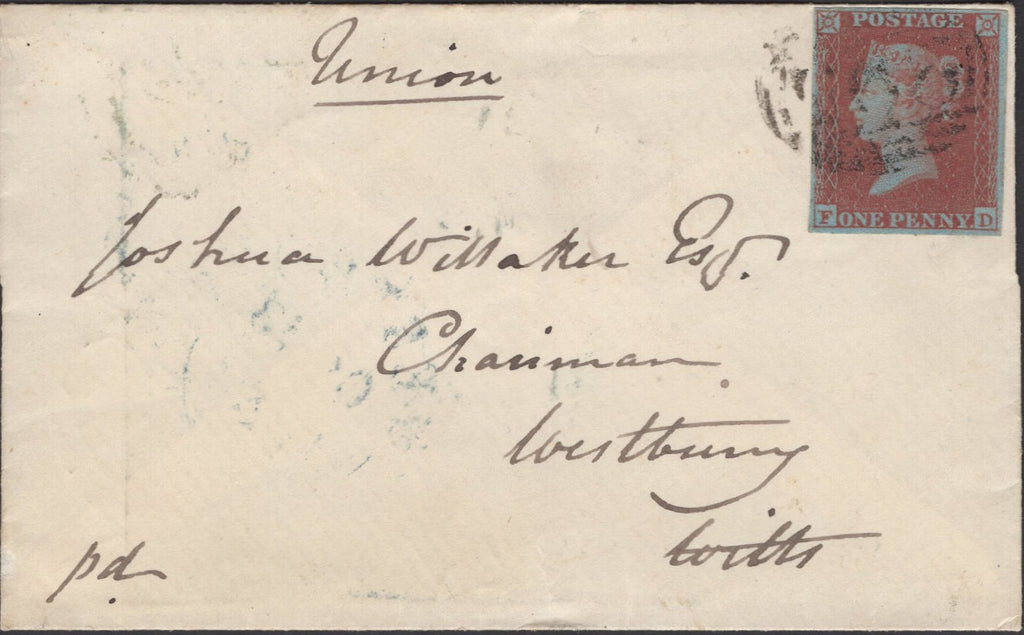 Union
POSTAGE
F ONE PENNY. D
Joshua Wittaker Esq.
Chairman
Westbury
Wilts
pd